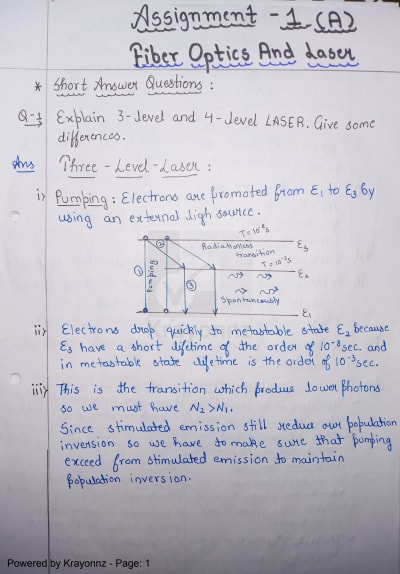 Assignment - 1 (A)
Fiber Optics And Laser
* Short Answer Questions :
Q-1 Explain 3-Level and 4-Level LASER. Give some
differences.
Ans Three - Level - Laser :
i) Pumping : Electrons are promoted from E1 to E3 by
using an external ligh source.
T = 10⁻⁸s
② Radiationless E3
transition
T = 10⁻³s
E2
① Pumping
③ Spontaneously
E1
ii) Electrons drop quickly to metastable state E2 because
E3 have a short lifetime of the order of 10⁻⁸ sec. and
in metastable state lifetime is the order of 10⁻³ sec.
iii) This is the transition which produce lower photons
so we must have N2 > N1.
Since stimulated emission still reduce our population
inversion so we have to make sure that pumping
exceed from stimulated emission to maintain
population inversion.
Powered by Krayonnz - Page: 1